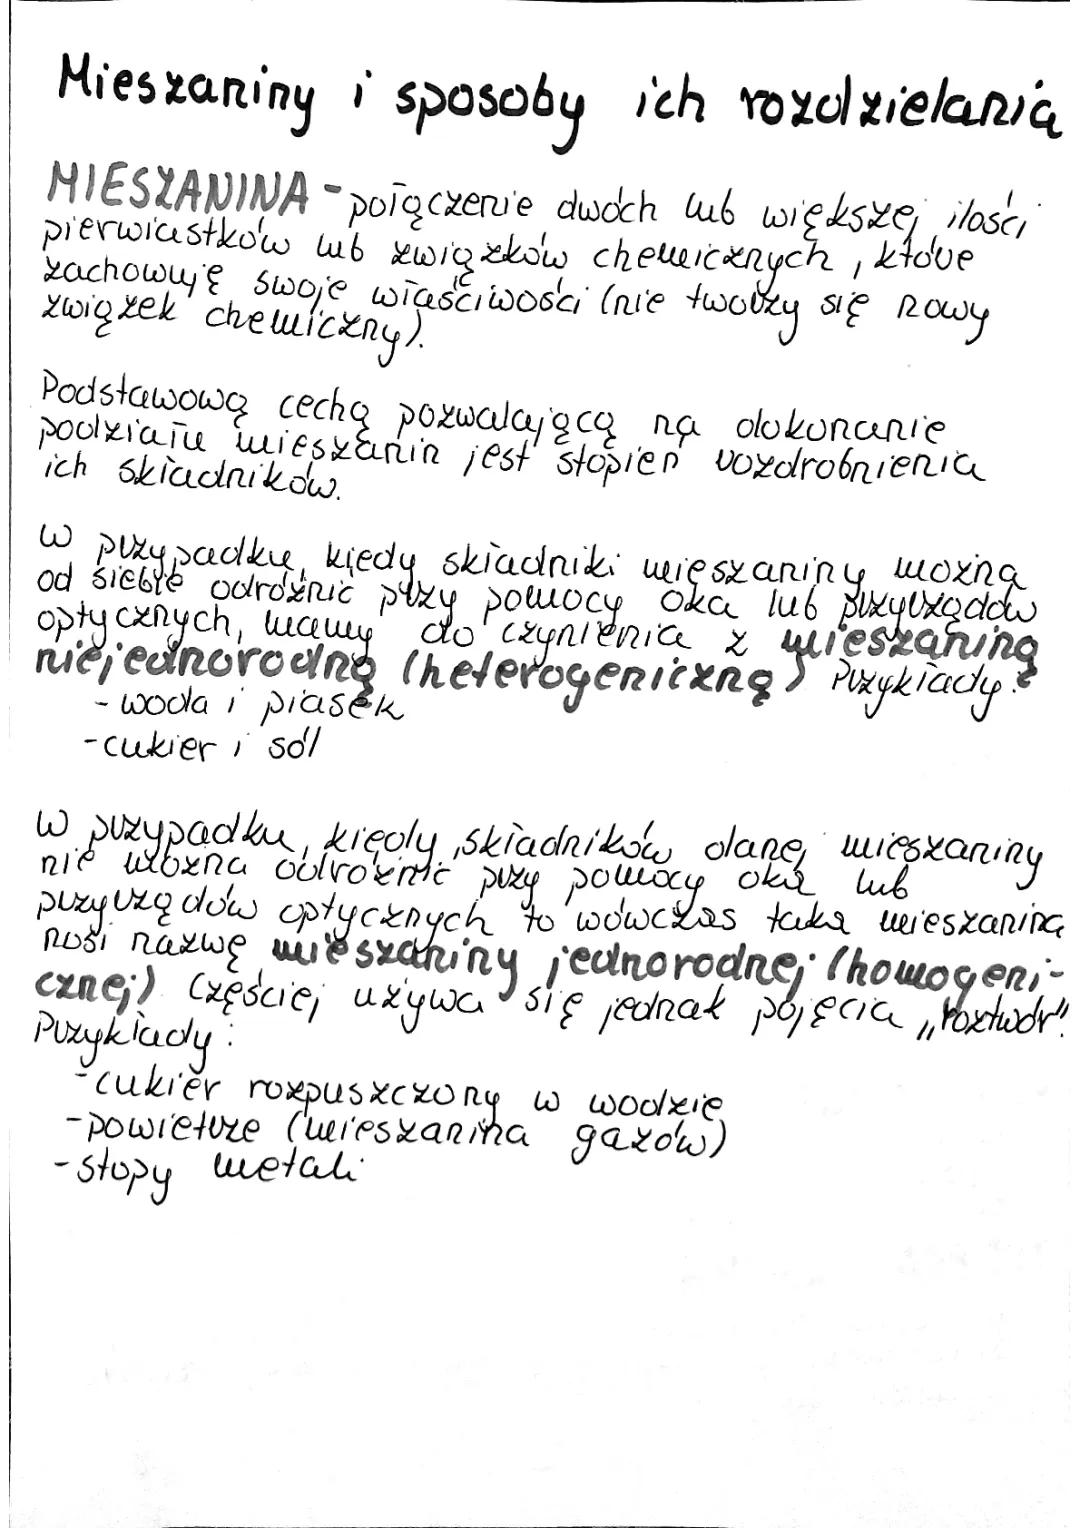 Mieszaniny i sposoby ich rozdzielania
MIESZANINA - połączenie dwóch lub większej ilości
pierwiastków lub związków chemicznych, które
zachowuję swoje właściwości (nie tworzy się nowy
związek chemiczny).
Podstawową cechą pozwalającą na dokonanie
podziału mieszanin jest stopień rozdrobnienia
ich składników.
W przypadku, kiedy składniki mieszaniny można
od siebie odróżnić przy pomocy oka lub przyrządów
optycznych, mamy do czynienia z mieszaniną
niejednorodną (heterogeniczną) Przykłady:
- woda i piasek
- cukier i sól
W przypadku, kiedy składników danej mieszaniny
nie można odróżnić przy pomocy oka lub
przyrządów optycznych to wówczas taka mieszanina
nosi nazwę mieszaniny jednorodnej (homogeni-
cznej) Częściej używa się jednak pojęcia „roztwór".
Przykłady:
- cukier rozpuszczony w wodzie
- powietrze (mieszanina gazów)
- stopy metali